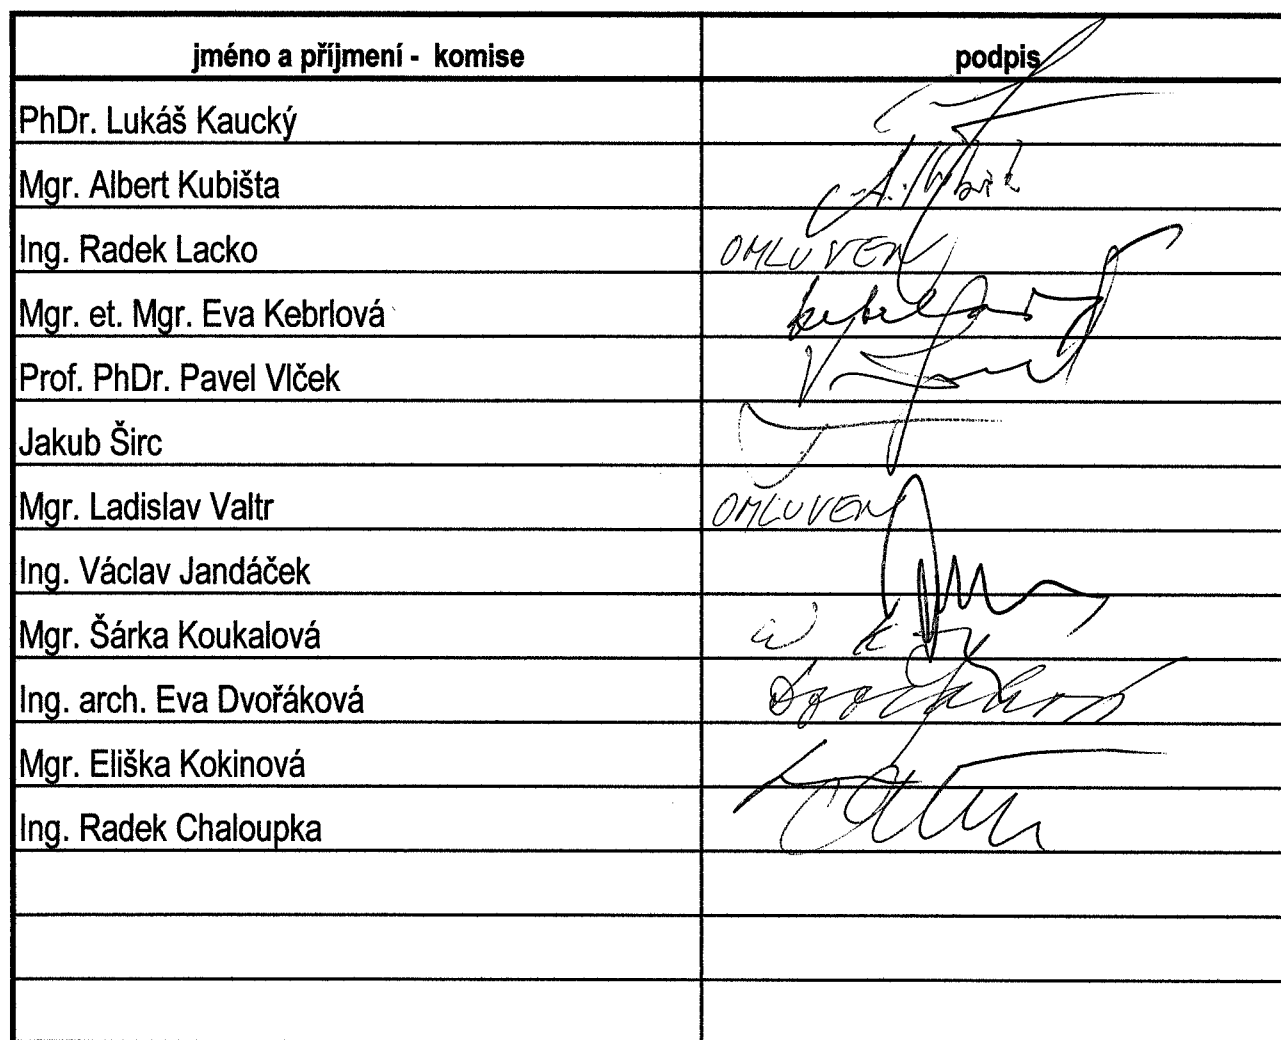 jméno a příjmení - komise podpis
PhDr. Lukáš Kaucký
Mgr. Albert Kubišta
Ing. Radek Lacko OMLUVEN
Mgr. et. Mgr. Eva Kebrlová
Prof. PhDr. Pavel Vlček
Jakub Širc
Mgr. Ladislav Valtr OMLUVEN
Ing. Václav Jandáček
Mgr. Šárka Koukalová
Ing. arch. Eva Dvořáková
Mgr. Eliška Kokinová
Ing. Radek Chaloupka